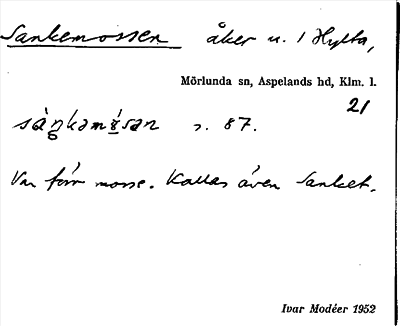 Sankemossen åker u. 1 Hylta,
Mörlunda sn, Aspelands hd, Klm. l.
21
s. 87.
Var förr mosse. Kallas även Sanket.
Ivar Modéer 1952